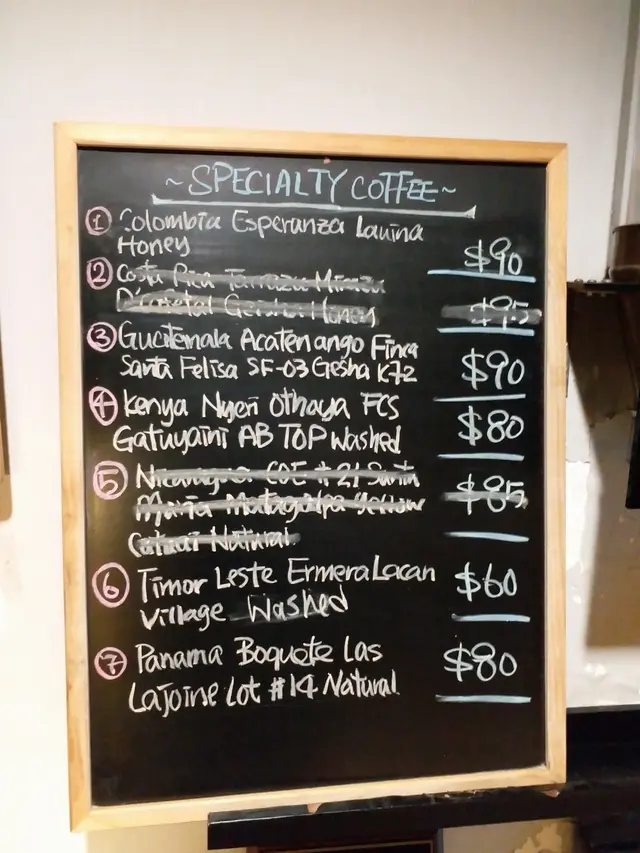 ~ SPECIALTY COFFEE ~
① Colombia Esperanza Lauina
Honey $90
② Costa Rica Tarrazu
Geisha Honey $95
③ Guatemala Acatenango Finca
Santa Felisa SF-03 Gesha K72 $90
④ Kenya Nyeri Othaya FCS
Gatuyaini AB TOP Washed $80
⑤ Nicaragua COE #21 Santa
Maria Matagalpa Yellow $85
Catuai Natural
⑥ Timor Leste Ermera Lacan $60
Village Washed
⑦ Panama Boquete Las $80
Lajoine Lot #14 Natural